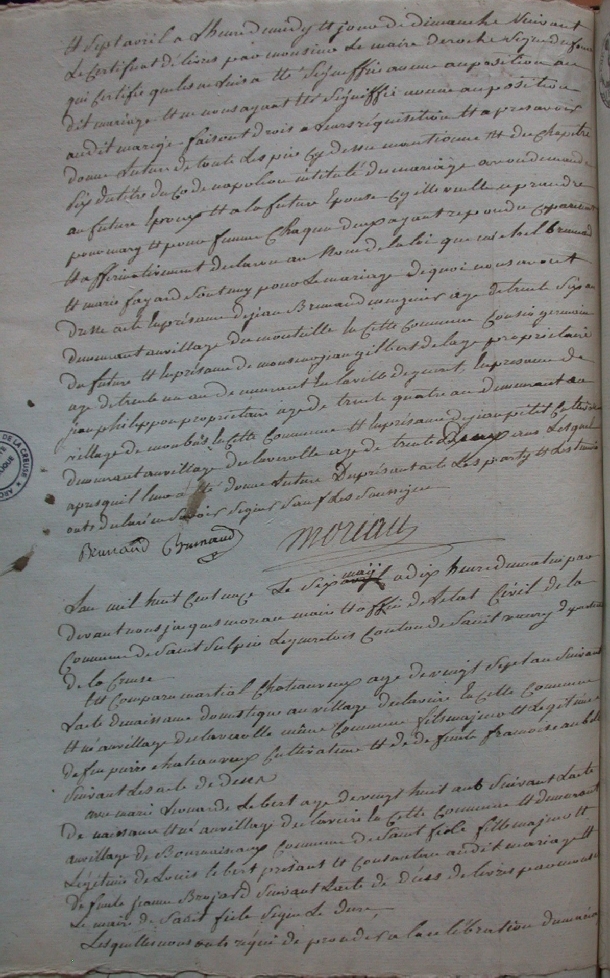 et sept avril a l'heure de midy et jour de dimanche suivant
le certificat délivré par monsieur le maire de roche
qui certifie qu'il ne lui a été signiffié aucune opposition au
dit mariage et ne nous ayant été signiffié aucune opposition
au dit mariage faisant droit a leurs réquisition et apres avoir
donné lecture de toute les pièce cy dessus mentionné et du chapitre
six du titre du Code napoléon intitulé du mariage avon demandé
au future Epoux et a la future Epouse cy elle veulle se prendre
pour mary et pour femme Chaqun deux ayant repondu séparément
et affirmativement declaron au Nom de la loi que michel Brunaud
et marie fayard sont uny pour le mariage de quoi nous avont
dressé acte En présance de jean Brunaud age de trente six an
demeurant au village du monteille En Cette Commune Cousin germain
du future et En présance de monsieur jean gilbert delage propriétaire
age de trente un an demeurant En la ville de gueret En présance de
jean philippon proprietaire age de trente quatre an demeurant au
village de monbois En Cette Commune et En présance de jean petit Cultivateur
demeurant au village du laverolle age de trente deux ans Lesquel
apres qu'il leur a été donné lecture du présant acte Les party et Les temoin
onts declaré ne savoir signer sauf Les Soussigné
Brunaud Brunaud moreau
Lan mil huit Cent onze Le six may a dix heure du matin par
devant nous jacques moreau maire et officié de letat Civil de la
Commune de Saint Sulpice Le gueretois Canton de Saint vaury département
de la Creuse
Est Comparu martial Chateauvieux age de vingt sept an suivant
Lacte de naissance domestique au village de lavaire En cette Commune
et né au village du laverolle même Commune fils majeur et Légitime
de feu pierre chateauvieux cultivateur et de feue francoise
suivant Les acte de decer
avec marie Léonarde Lebert age de vingt huit ans suivant Lacte
de naissance et né au village de lavaire En Cette Commune et demeurant
au village de Commune de Saint fiele fille majeur et
Légitime de Louis lebert présant et Consantant au dit mariage et
de feue jeanne Brojard suivant Lacte de decer délivré par monsieur
Le maire de Saint fiele signé Le dure,
Lesquelles nous onts réqui de proceder a la célébration du mariage